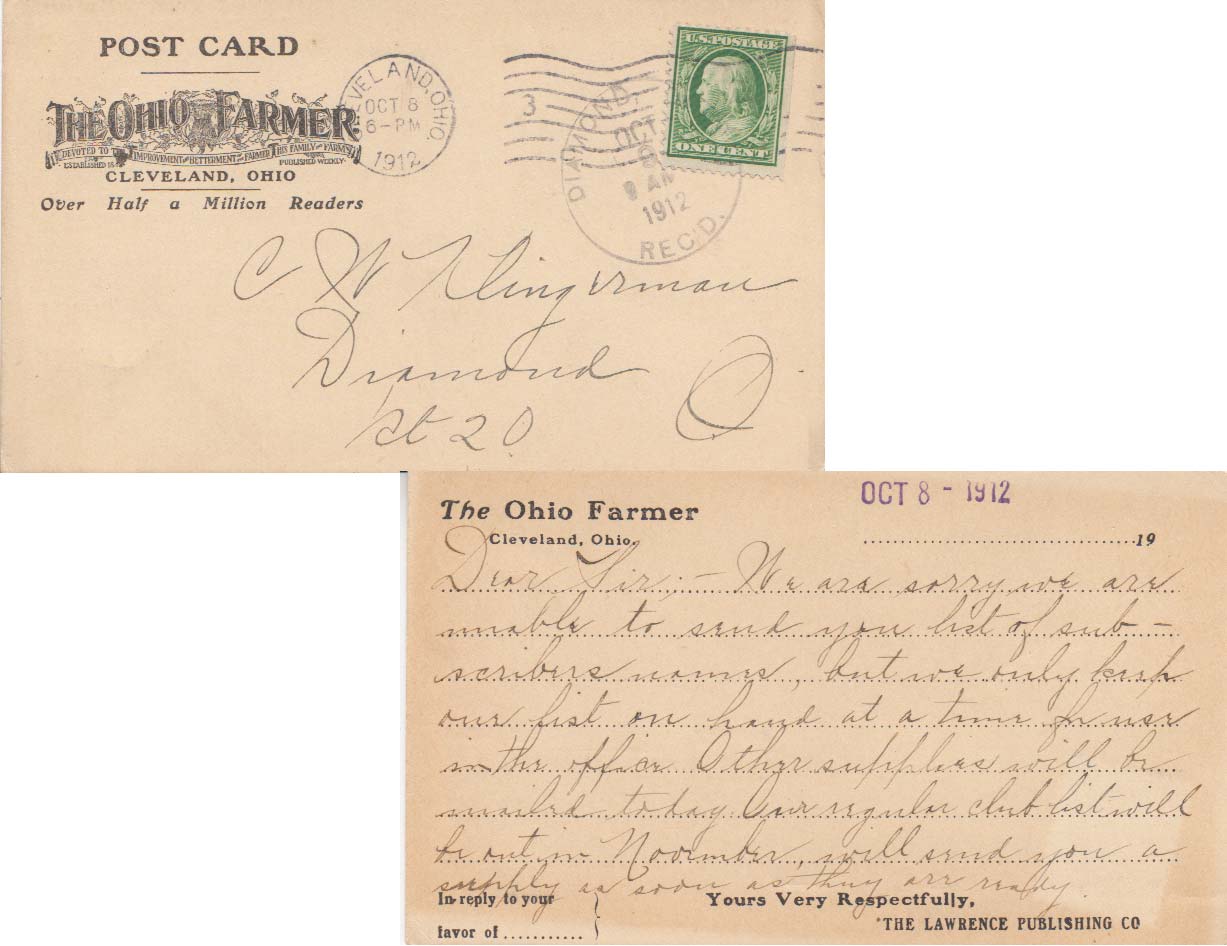 POST CARD
THE OHIO FARMER.
DEVOTED TO THE IMPROVEMENT AND BETTERMENT OF THE FARMER HIS FAMILY AND FARM
ESTABLISHED PUBLISHED WEEKLY
CLEVELAND, OHIO
Over Half a Million Readers
CLEVELAND, OHIO.
OCT 8
6-PM
1912
3
DIAMOND,
OCT
9 AM
1912
REC'D.
U.S. POSTAGE
ONE CENT
C W Klingerman
Diamond O
Rt 20
OCT 8 - 1912
The Ohio Farmer
Cleveland, Ohio. 19
Dear Sir:- We are sorry we are
unable to send you list of sub-
scribers names, but we only keep
our list on hand at a time in use
in the office Other supplies will be
mailed today Our regular club list will
be out in November, will send you a
supply as soon as they are ready.
In reply to your
favor of
Yours Very Respectfully,
THE LAWRENCE PUBLISHING CO